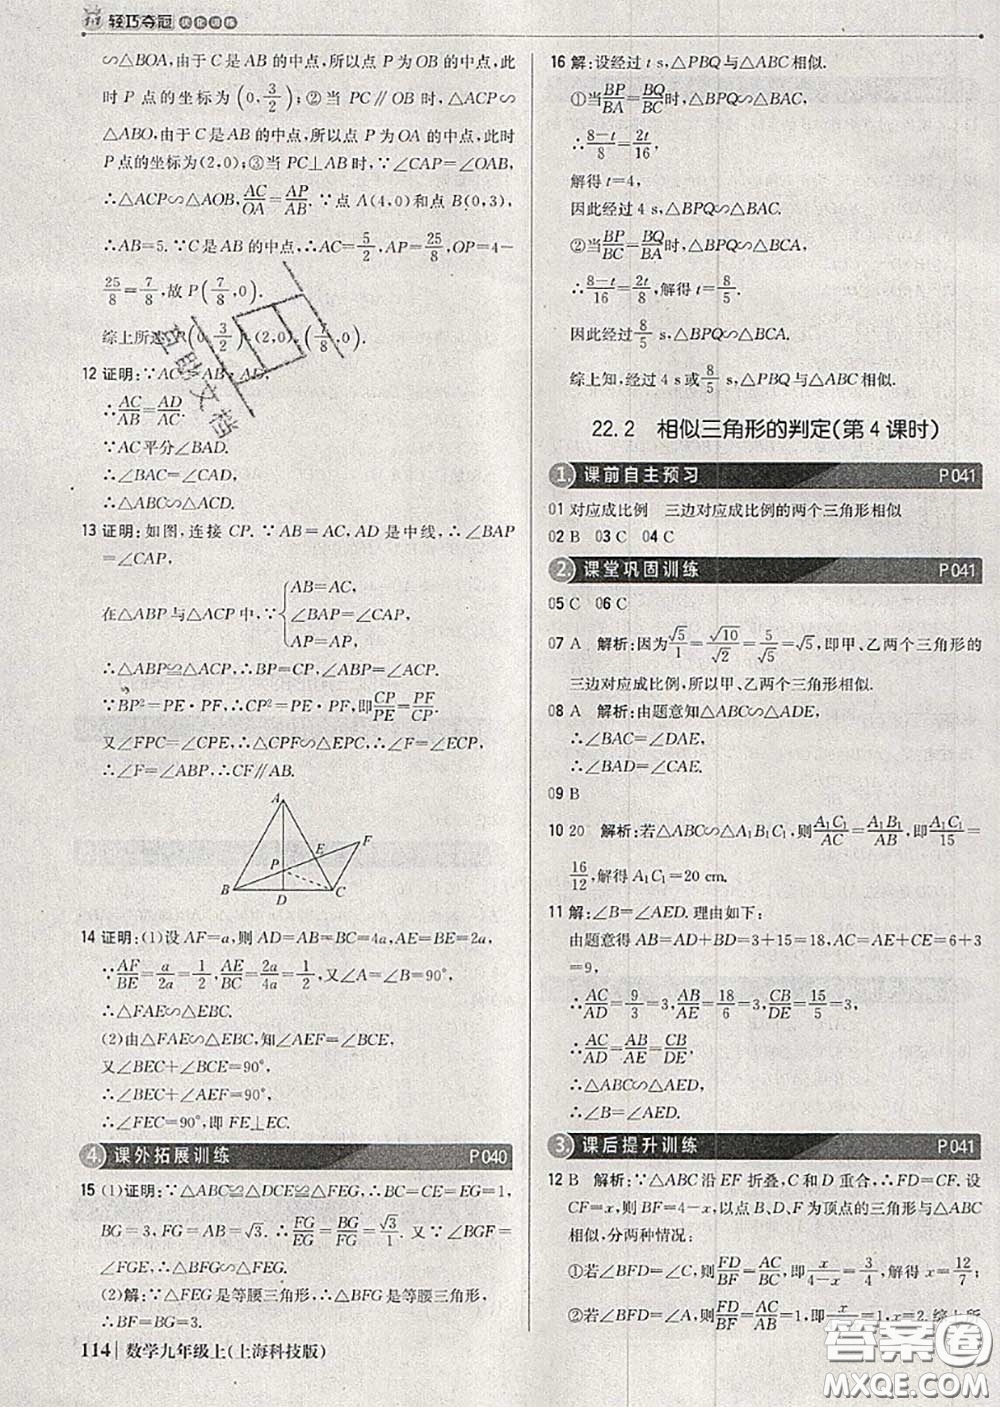 轻巧夺冠 优化训练
∽△BOA,由于 C 是 AB 的中点,所以点 P 为 OB 的中点,此
时 P 点的坐标为(0,3/2);②当 PC∥OB 时,△ACP∽
△ABO,由于 C 是 AB 的中点,所以点 P 为 OA 的中点,此时
P 点的坐标为(2,0);③当 PC⊥AB 时,∵∠CAP=∠OAB,
∴△ACP∽△AOB,AC/OA=AP/AB.∵点 A(4,0)和点 B(0,3),
∴AB=5.∵C 是 AB 的中点,∴AC=5/2,AP=25/8,OP=4-
25/8=7/8,故 P(7/8,0).
综上所述,P(0,3/2),(2,0),(7/8,0).
12 证明:∵AC²=AB·AD,
∴AC/AB=AD/AC.
∵AC平分∠BAD,
∴∠BAC=∠CAD,
∴△ABC∽△ACD.
13 证明:如图,连接 CP.∵AB=AC,AD 是中线,∴∠BAP
=∠CAP,
在△ABP与△ACP中,∵{AB=AC,
∠BAP=∠CAP,
AP=AP,
∴△ABP≌△ACP.∴BP=CP,∠ABP=∠ACP.
∵BP²=PE·PF,∴CP²=PE·PF,即CP/PE=PF/CP.
又∠FPC=∠CPE,∴△CPF∽△EPC,∴∠F=∠ECP,
∴∠F=∠ABP,∴CF∥AB.
A
F
E
P
B D C
14 证明:(1)设 AF=a,则 AD=AB=BC=4a,AE=BE=2a,
∵AF/BE=a/2a=1/2,AE/BC=2a/4a=1/2,又∠A=∠B=90°,
∴△FAE∽△EBC.
(2)由△FAE∽△EBC,知∠AEF=∠BCE,
又∠BEC+∠BCE=90°,
∴∠BEC+∠AEF=90°,
∴∠FEC=90°,即 FE⊥EC.
4. 课外拓展训练 P040
15 (1)证明:∵△ABC≌△DCE≌△FEG,∴BC=CE=EG=1,
BG=3,FG=AB=√3.∴FG/EG=BG/FG=√3/1.又∠BGF=
∠FGE,∴△BFG∽△FEG.
(2)解:∵△FEG是等腰三角形,∴△BFG是等腰三角形,
∴BF=BG=3.
114 数学九年级上(上海科技版)
16 解:设经过 t s,△PBQ与△ABC相似.
①当BP/BA=BQ/BC时,△BPQ∽△BAC,
∴(8-t)/8=2t/16,
解得 t=4,
因此经过 4 s,△BPQ∽△BAC.
②当BP/BC=BQ/BA时,△BPQ∽△BCA,
∴(8-t)/16=2t/8,解得 t=8/5.
因此经过8/5 s,△BPQ∽△BCA.
综上知,经过 4 s或8/5 s,△PBQ与△ABC相似.
22.2 相似三角形的判定(第4课时)
1. 课前自主预习 P041
01 对应成比例 三边对应成比例的两个三角形相似
02 B 03 C 04 C
2. 课堂巩固训练 P041
05 C 06 C
07 A 解析:因为√5/1=√10/√2=5/√5=√5,即甲、乙两个三角形的
三边对应成比例,所以甲、乙两个三角形相似.
08 A 解析:由题意知△ABC∽△ADE,
∴∠BAC=∠DAE,
∴∠BAD=∠CAE.
09 B
10 20 解析:若△ABC∽△A₁B₁C₁,则A₁C₁/AC=A₁B₁/AB,即A₁C₁/15=
16/12,解得 A₁C₁=20 cm.
11 解:∠B=∠AED.理由如下:
由题意得 AB=AD+BD=3+15=18,AC=AE+CE=6+3
=9,
∴AC/AD=9/3=3,AB/AE=18/6=3,CB/DE=15/5=3,
∴AC/AD=AB/AE=CB/DE,
∴△ABC∽△AED,
∴∠B=∠AED.
3. 课后提升训练 P041
12 B 解析:∵△ABC沿 EF 折叠,C 和 D 重合,∴FD=CF.设
CF=x,则 BF=4-x,以点 B、D、F为顶点的三角形与△ABC
相似,分两种情况:
①若∠BFD=∠C,则FD/BF=AC/BC,即x/(4-x)=3/4,解得 x=12/7;
②若∠BFD=∠A,则FD/BF=AC/AB=1,即x/(4-x)=1,x=2.综上所
答案圈
MXQE.COM